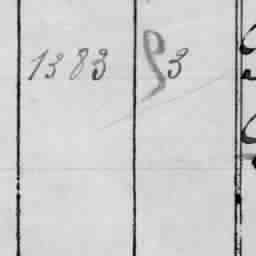 1383 93